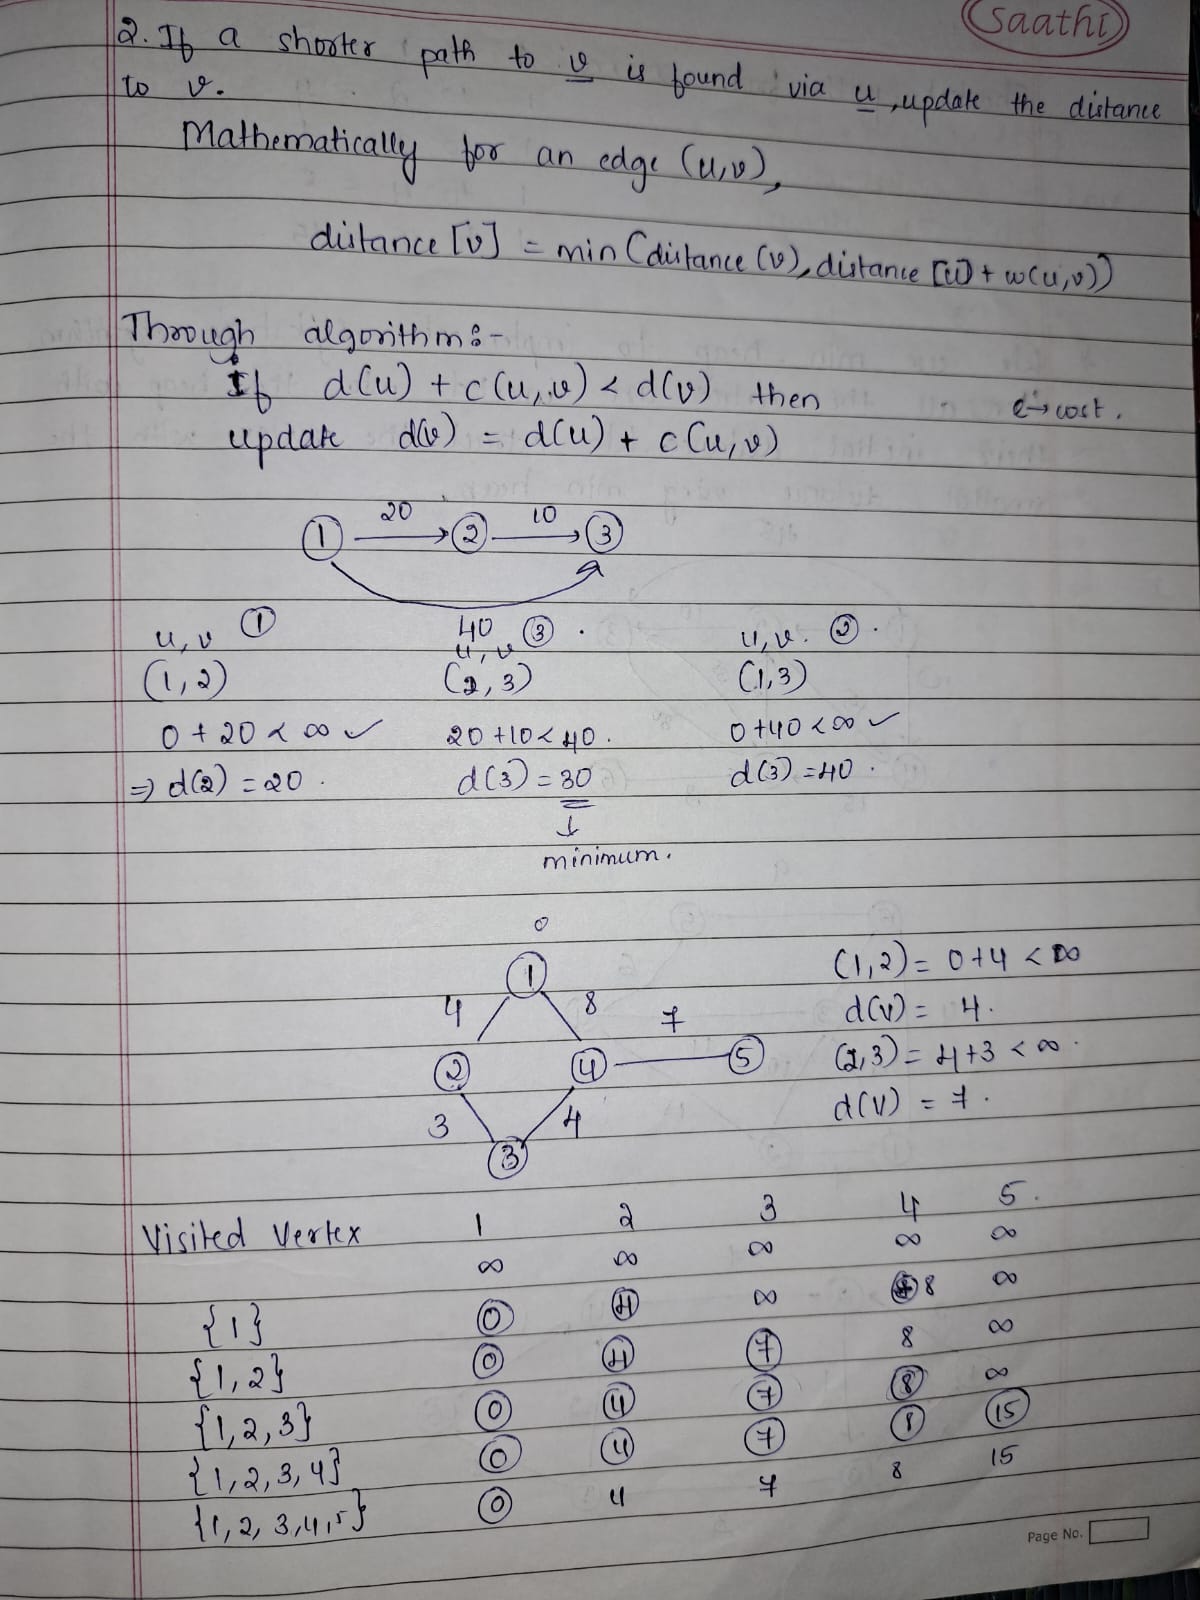 Saathi
2. If a shorter path to v is found via u, update the distance
to v.
Mathematically for an edge (u,v),
distance [v] = min (distance (v), distance [u] + w(u,v))
Through algorithm:-
If d(u) + c(u,v) < d(v) then
c→cost.
update d(v) = d(u) + c(u,v)
1 20 2 10 3
40
u,v ① u,v ③ . u,v. ② .
(1,2) (2,3) (1,3)
0 + 20 < ∞ ✓ 20 +10 < 40. 0+40 < ∞ ✓
⇒ d(2) = 20 . d(3) = 30 d(3) = 40 .
↓
minimum.
0
1
4 8 7
2 4 5
3 4
3
(1,2) = 0+4 < ∞
d(v) = 4.
(2,3) = 4+3 < ∞.
d(v) = 7.
Visited Vertex 1 2 3 4 5.
∞ ∞ ∞ ∞ ∞
{1} 0 4 ∞ 8 ∞
{1,2} 0 4 7 8 ∞
{1,2,3} 0 4 7 8 ∞
{1,2,3,4} 0 4 7 8 15
{1,2,3,4,5} 0 4 7 8 15
Page No.